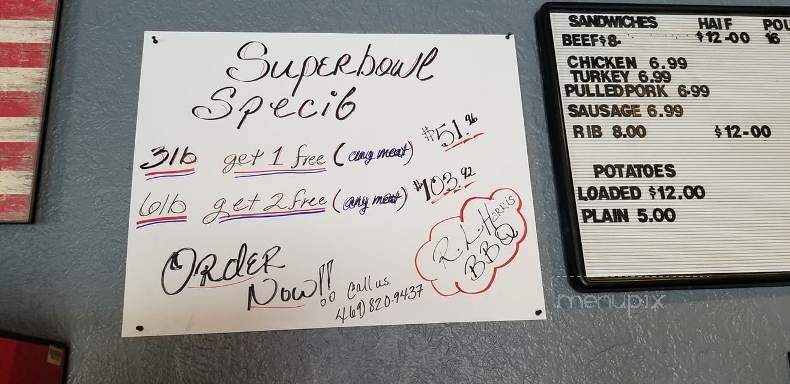 Superbowl
Specib
3lb get 1 free (any meat) $51.96
6lb get 2 free (any meat) $103.92
ORdeR
Now!!
Call us
469) 820-9437
R.L. Harris
BBQ
SANDWICHES HALF POU
BEEF$8- $12-00 16
CHICKEN 6.99
TURKEY 6.99
PULLED PORK 6-99
SAUSAGE 6.99
RIB 8.00 $12-00
POTATOES
LOADED $12.00
PLAIN 5.00
menupix